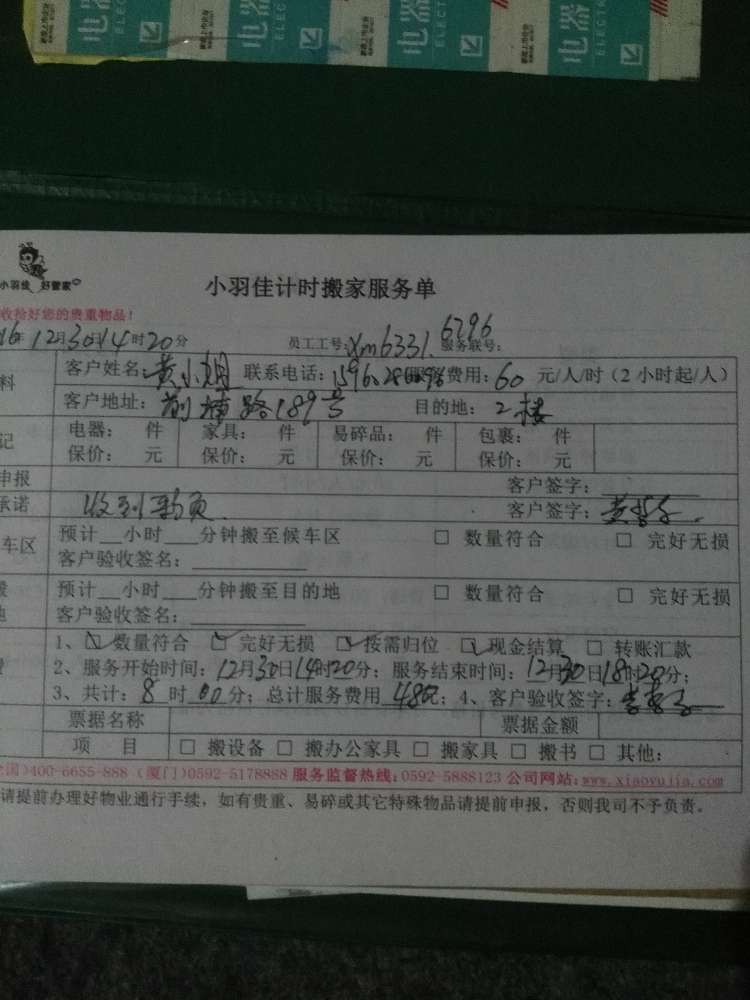 电器 电器 电器 电器
小羽佳 好管家
小羽佳计时搬家服务单
收拾好您的贵重物品!
16年12月30日14时20分 员工工号:xm6331. 服务联号:6296
料 客户姓名:黄小姐 联系电话: 费用:60 元/人/时(2小时起/人)
客户地址:前埔路189号 目的地:2楼
记 电器: 件 家具: 件 易碎品: 件 包裹: 件
保价: 元 保价: 元 保价: 元 保价: 元
申报 客户签字:
承诺 收到 客户签字:
车区 预计__小时___分钟搬至候车区 □ 数量符合 □ 完好无损
客户验收签名:
预计__小时___分钟搬至目的地 □ 数量符合 □ 完好无损
地 客户验收签名:
1、☑数量符合 ☑完好无损 ☑按需归位 ☑现金结算 □ 转账汇款
2、服务开始时间:12月30日14时20分;服务结束时间:12月30日18时20分;
3、共计:8时00分;总计服务费用480元;4、客户验收签字:
票据名称 票据金额
项 目 □ 搬设备 □ 搬办公家具 □ 搬家具 □ 搬书 □ 其他:
全国)400-6655-888 (厦门)0592-5178888 服务监督热线:0592-5888123 公司网站:www.xiaoyujia.com
请提前办理好物业通行手续,如有贵重、易碎或其它特殊物品请提前申报,否则我司不予负责。